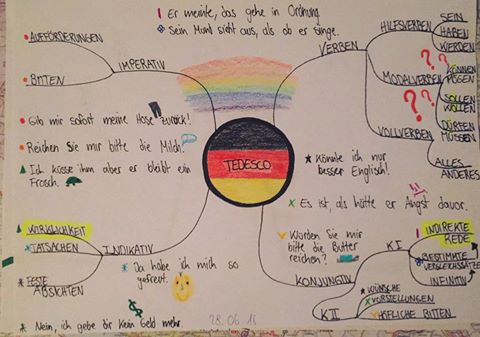 Er meinte, das gehe in Ordnung.
Sein Mund sieht aus, als ob er singe.
AUFFÖRDERUNGEN
BITTEN
IMPERATIV
VERBEN
HILFSVERBEN
SEIN
HABEN
WERDEN
MODALVERBEN
? ?
KÖNNEN
MÖGEN
? ?
SOLLEN
WOLLEN
DÜRFEN
MÜSSEN
VOLLVERBEN
ALLES
ANDERES
Gib mir sofort meine Hose zurück!
Reichen Sie mir bitte die Milch!
Ich küsse ihn aber er bleibt ein
Frosch.
TEDESCO
Könnte ich nur
besser Englisch!
Es ist, als hätte er Angst davor.
Würden Sie mir
bitte die Butter
reichen?
WIRKLICHKEIT
TATSACHEN
FESTE
ABSICHTEN
INDIKATIV
Da habe ich mich so
gefreut.
$
Nein, ich gebe dir kein Geld mehr.
KONJUNKTIV
KI
INDIREKTE
REDE
BESTIMMTE
VERGLEICHSSÄTZE
INFINITIV
KII
WÜNSCHE
VORSTELLUNGEN
HÖFLICHE BITTEN